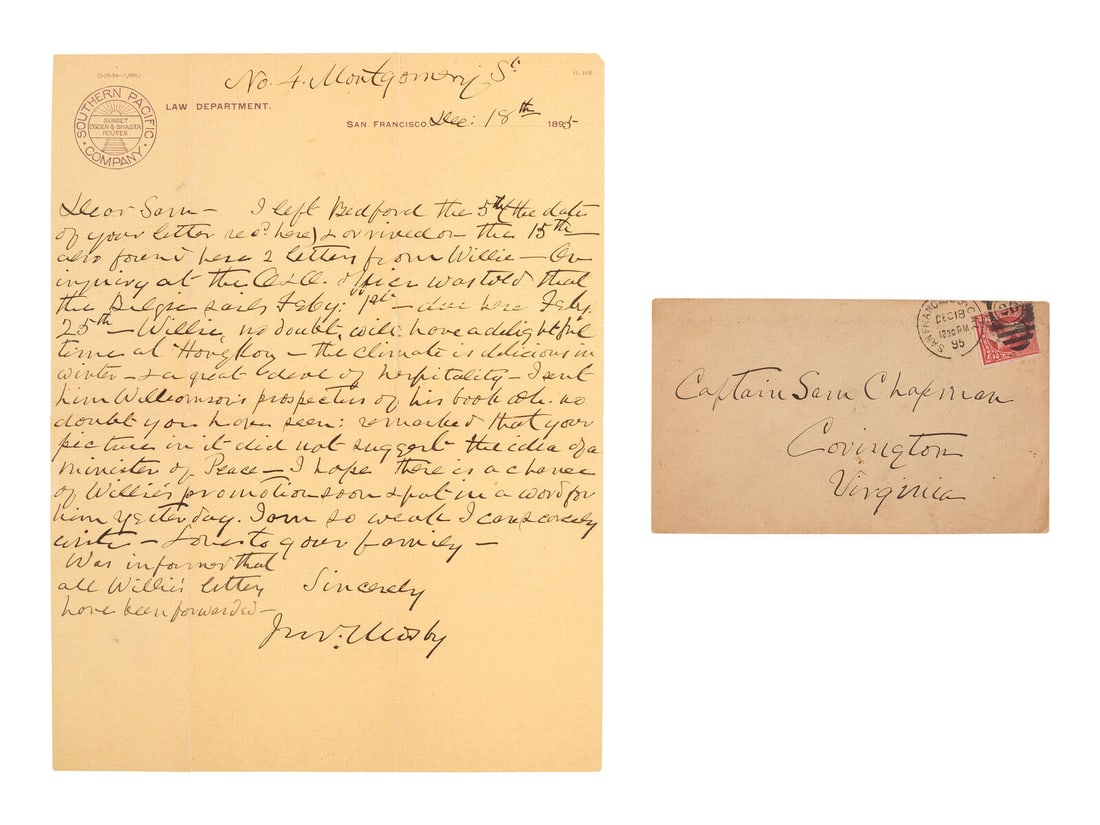 (5-29-94—1,000.)
G. 186.
No. 4. Montgomery St
SOUTHERN PACIFIC COMPANY
SUNSET
OGDEN & SHASTA
ROUTES
LAW DEPARTMENT.
SAN FRANCISCO, Dec: 18th 1895
Dear Sam— I left Bedford the 5th (the date
of your letter recd. here) & arrived on the 15th—
also found here 2 letters from Willie— On
inquiry at the O&O. office was told that
the Belgic sails Feby: 1st— due here Feby.
25th— Willie, no doubt, will have a delightful
time at Hong Kong— the climate is delicious in
winter— & a great deal of hospitality— I sent
him Williamson's prospectus of his book wh. no
doubt you have seen: remarked that your
picture in it did not suggest the idea of a
minister of Peace— I hope there is a chance
of Willie's promotion soon & put in a word for
him yesterday. I am so weak I can scarcely
write— Love to your family—
Was informed that
all Willie's letters
have been forwarded—
Sincerely
Jno. S. Mosby
SAN FRANCISCO, CAL.
DEC 18
1230 PM
95
Captain Sam Chapman
Covington
Virginia